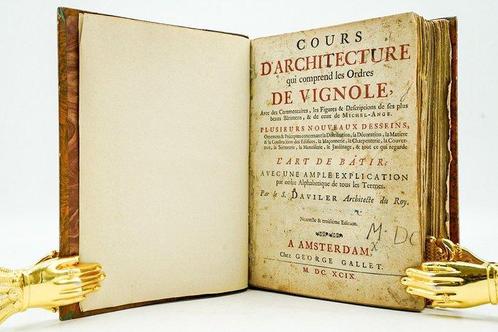 COURS
D'ARCHITECTURE
qui comprend les Ordres
DE VIGNOLE,
Avec des Commentaires, les Figures & Descriptions de ses plus
beaux Bâtimens, & de ceux de MICHEL-ANGE.
PLUSIEURS NOUVEAUX DESSEINS,
Ornemens & Préceptes concernant la Distribution, la Décoration, la Matiére
& la Construction des Edifices, la Maçonnerie, la Charpenterie, la Couver-
ture, la Serrurerie, la Menuiserie, le Jardinage, & tout ce qui regarde
L'ART DE BÂTIR;
AVEC UNE AMPLE EXPLICATION
par ordre Alphabetique de tous les Termes.
Par le S. DAVILER Architecte du Roy.
Nouvelle & troisième Edition.
M. DC
A AMSTERDAM,
Chez GEORGE GALLET.
M. DC. XCIX.